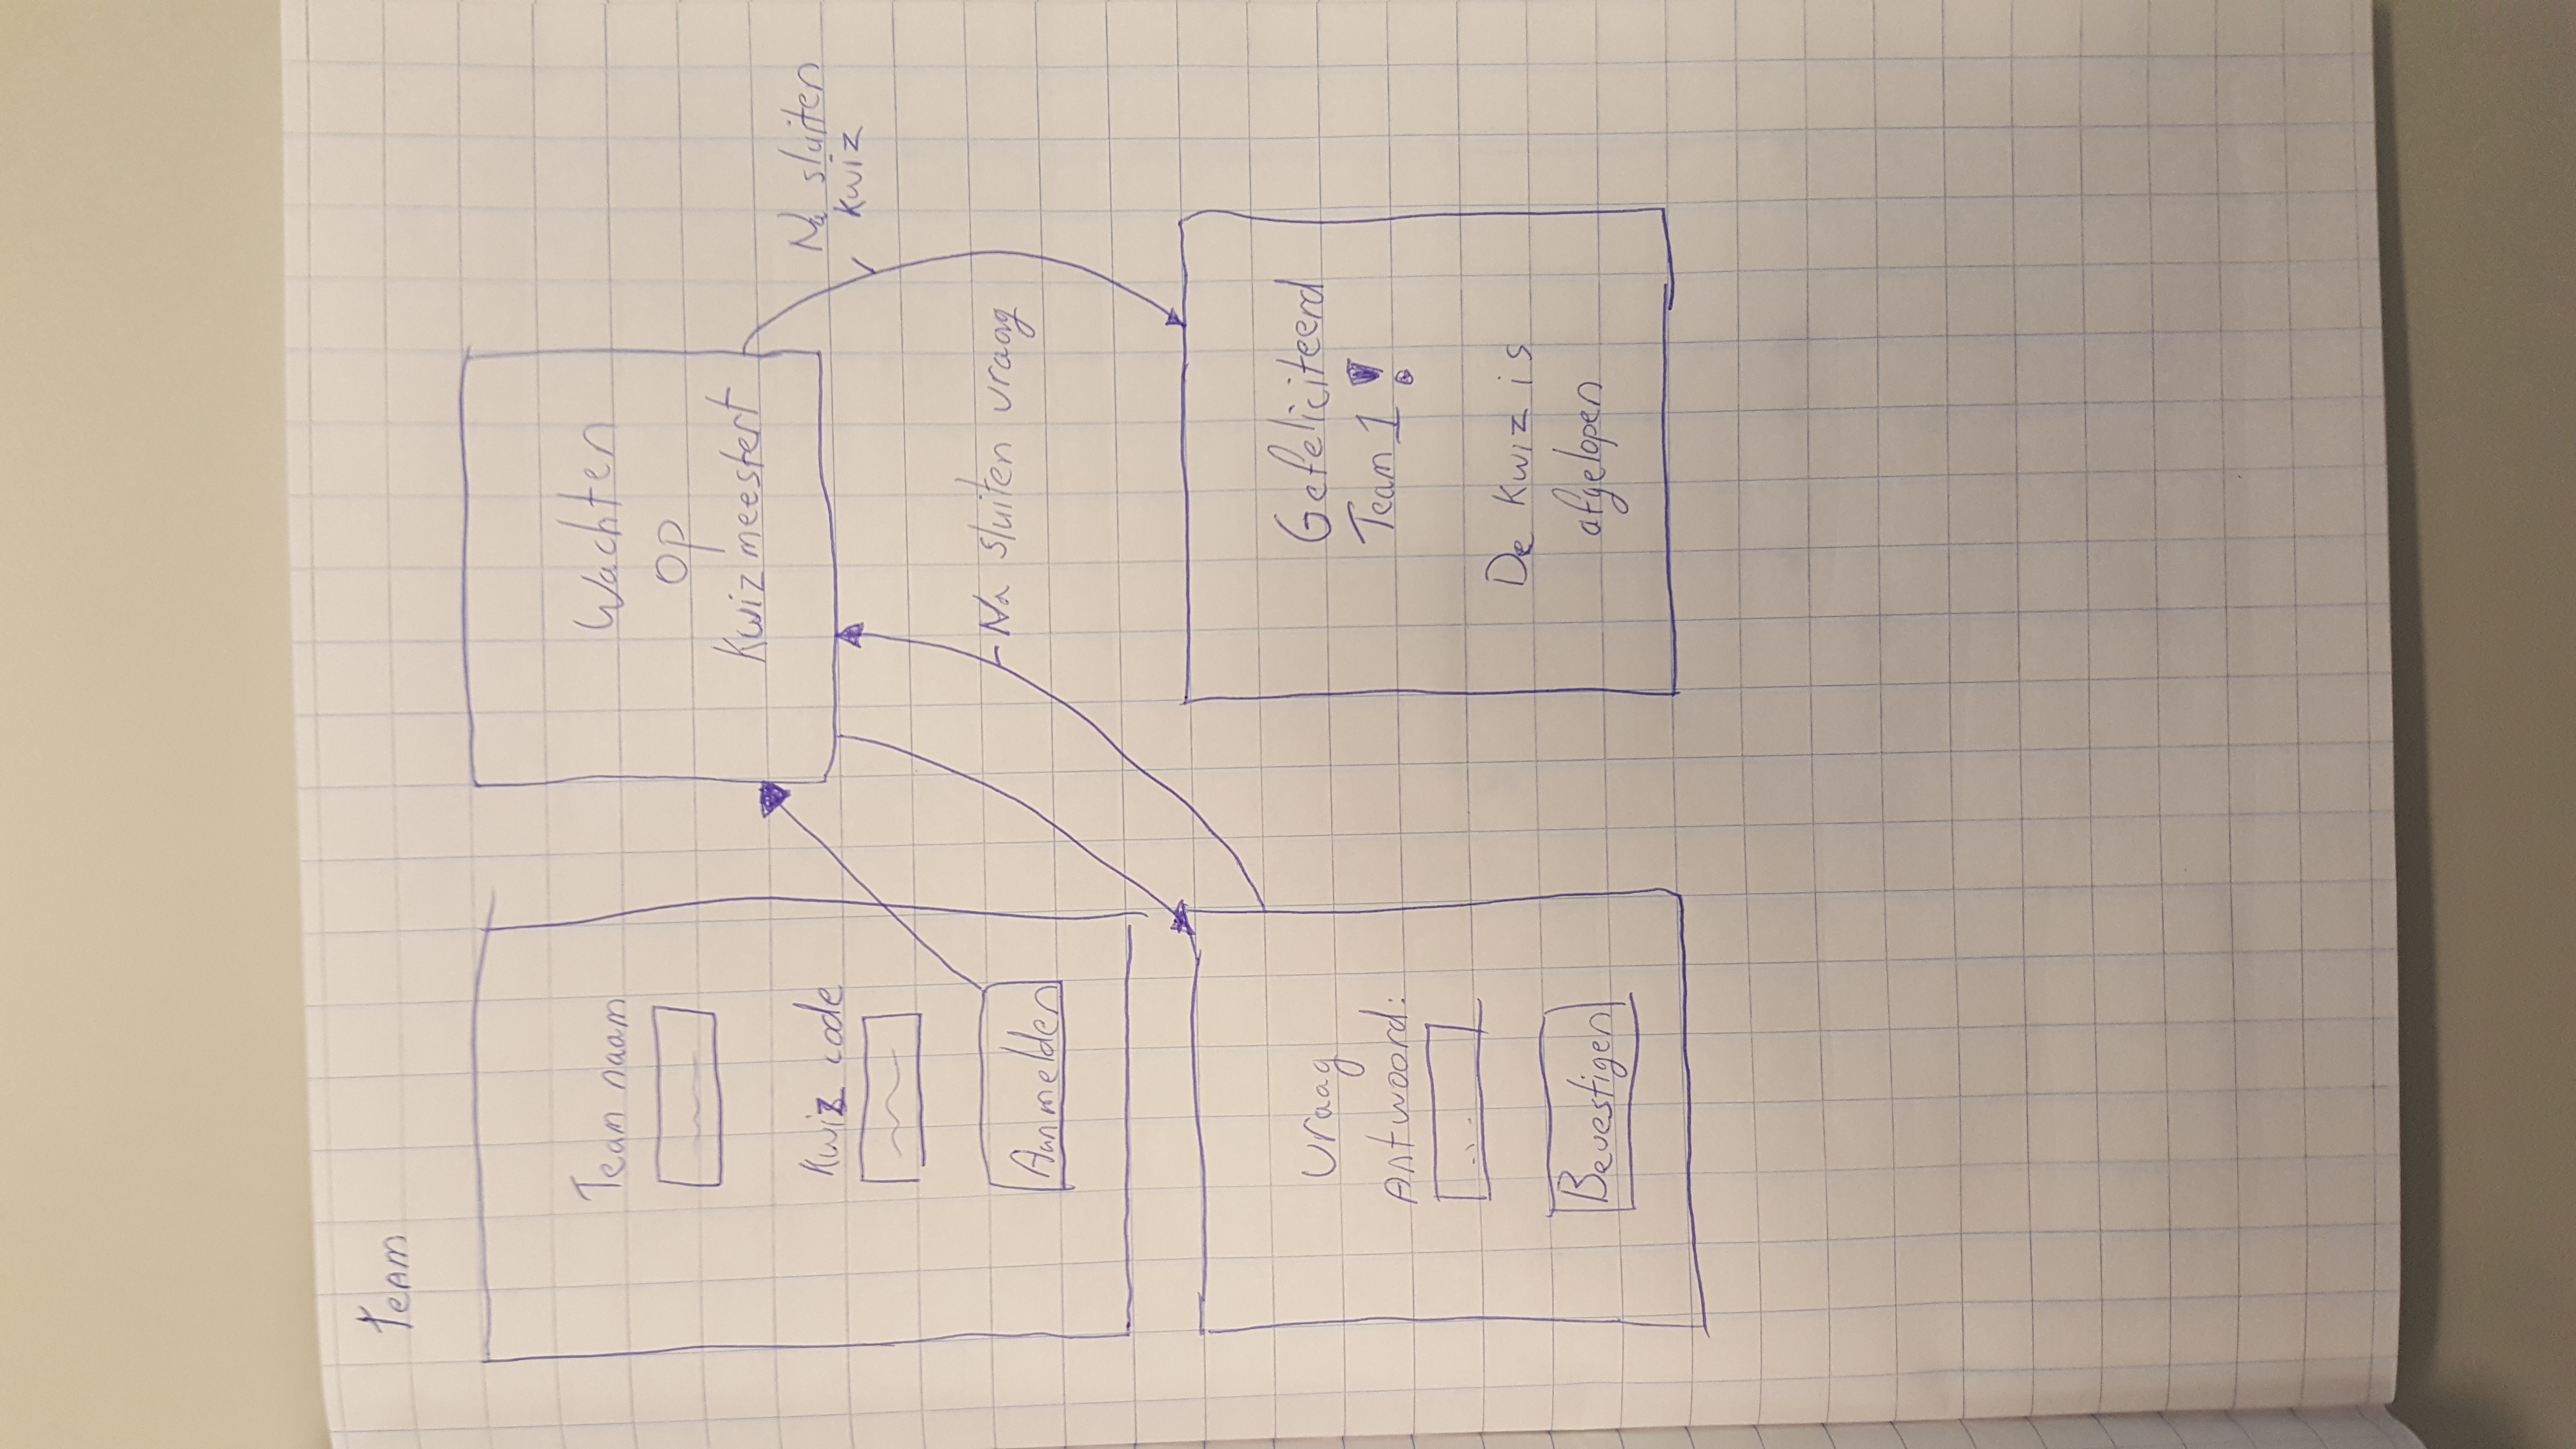 Team
Team naam
Kwiz code
Aanmelden
Wachten
op
Kwizmeestert
Na sluiten
kwiz
Na sluiten vraag
Vraag
Antwoord:
...
Bevestigen
Gefeliciteerd
Team 1!
De Kwiz is
afgelopen